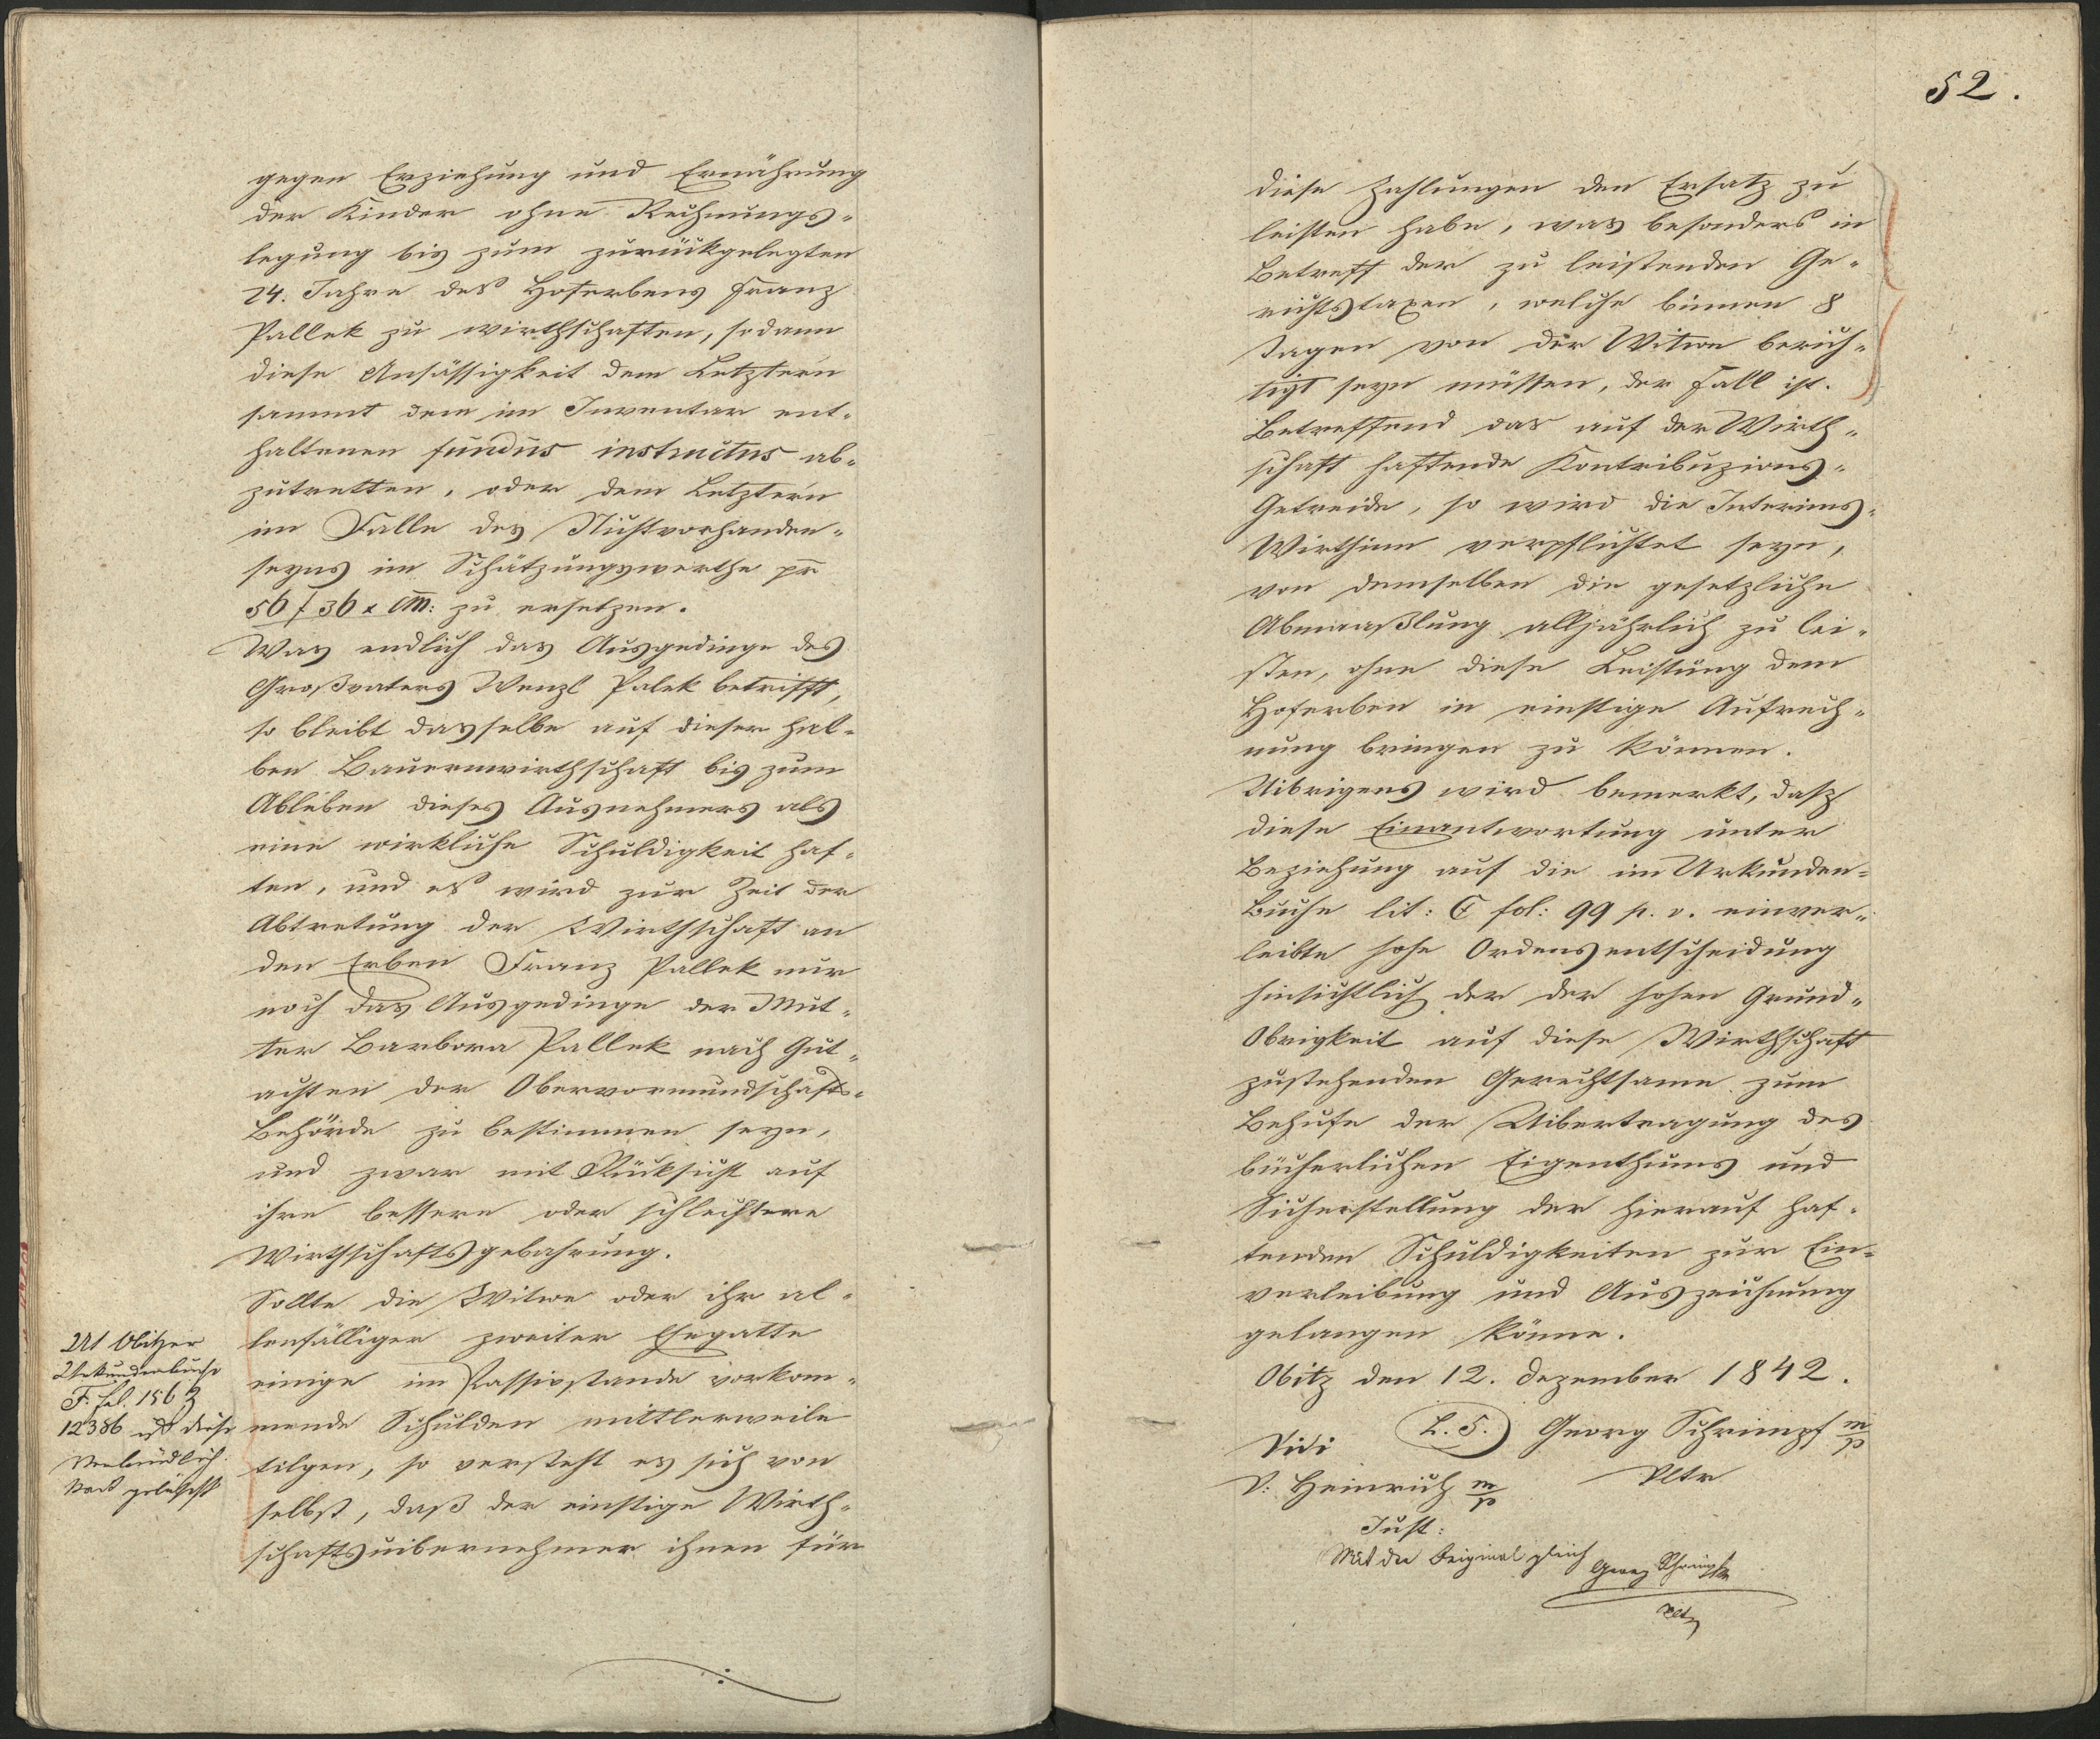 gegen Erziehung und Ernährung
der Kinder ohne Rechnungs-
legung bis zum zurückgelegten
24. Jahre des Hoferbens Franz
Pallek zu wirthschaften, sodann
diese Ansässigkeit dem Letztern
sammt dem im Inventar ent-
haltenen fundus instructus ab-
zutretten, oder dem Letztern
im Falle des Nichtvorhanden-
seyns im Schätzungswerthe pr
56 f 36 x CM: zu ersetzen.
Was endlich das Ausgedinge des
Großvaters Wenzl Palek betrifft,
so bleibt dasselbe auf dieser hal-
ben Bauernwirthschaft bis zum
Ableben dieses Ausnehmers als
eine wirkliche Schuldigkeit haf-
ten, und es wird zur Zeit der
Abtretung der Wirthschaft an
den Erben Franz Pallek nur
noch das Ausgedinge der Mut-
ter Barbora Pallek nach Gut-
achten der Obervormundschafts-
Behörde zu bestimmen seyn,
und zwar mit Rücksicht auf
ihre bessere oder schlechtere
Wirthschaftsgebahrung.
Sollte die Witwe oder ihr al-
lenfälliger zweiter Ehegatte
einige im Passivstande vorkom-
mende Schulden mittlerweile
tilgen, so versteht es sich von
selbst, daß der einstige Wirth-
schaftsuibernehmer ihnen für
Ut Obitzer
Urkundenbuche
F. fol. 156 Z
12386 ist diese
Verbindlich-
gelöscht
52.
diese Zahlungen den Ersatz zu
leisten habe, was besonders in
Betreff der zu leistenden Ge-
richtstaxen, welche binnen 8
Tagen von der Witwe berich-
tigt seyn müssen, der Fall ist.
Betreffend das auf der Wirth-
schaft haftende Kontribuzions-
Getreide, so wird die Interims-
Wirthinn verpflichtet seyn,
von demselben die gesetzliche
Abmaaßlung alljährlich zu lei-
sten, ohne diese Leistung dem
Hoferben in einstige Aufrech-
nung bringen zu können.
Uibrigens wird bemerkt, dasz
diese Einantwortung unter
Beziehung auf die im Urkunden-
Buche lit: C fol: 99 p. v. einver-
leibte hohe Ordensentscheidung
hinsichtlich der der hohen Grund-
Obrigkeit auf diese Wirthschaft
zustehenden Gerechtsame zum
Behufe der Uibertragung des
bücherlichen Eigenthums und
Sicherstellung der hierauf haf-
tenden Schuldigkeiten zur Ein-
verleibung und Auszeichnung
gelangen könne.
Obitz den 12. Dezember 1842.
L. S. Georg Schrimpf m/p
Vidi
V: Heinrich m/p
Vltr
Just:
Mit dem Original gleich
Georg Schrimpf
Vltr